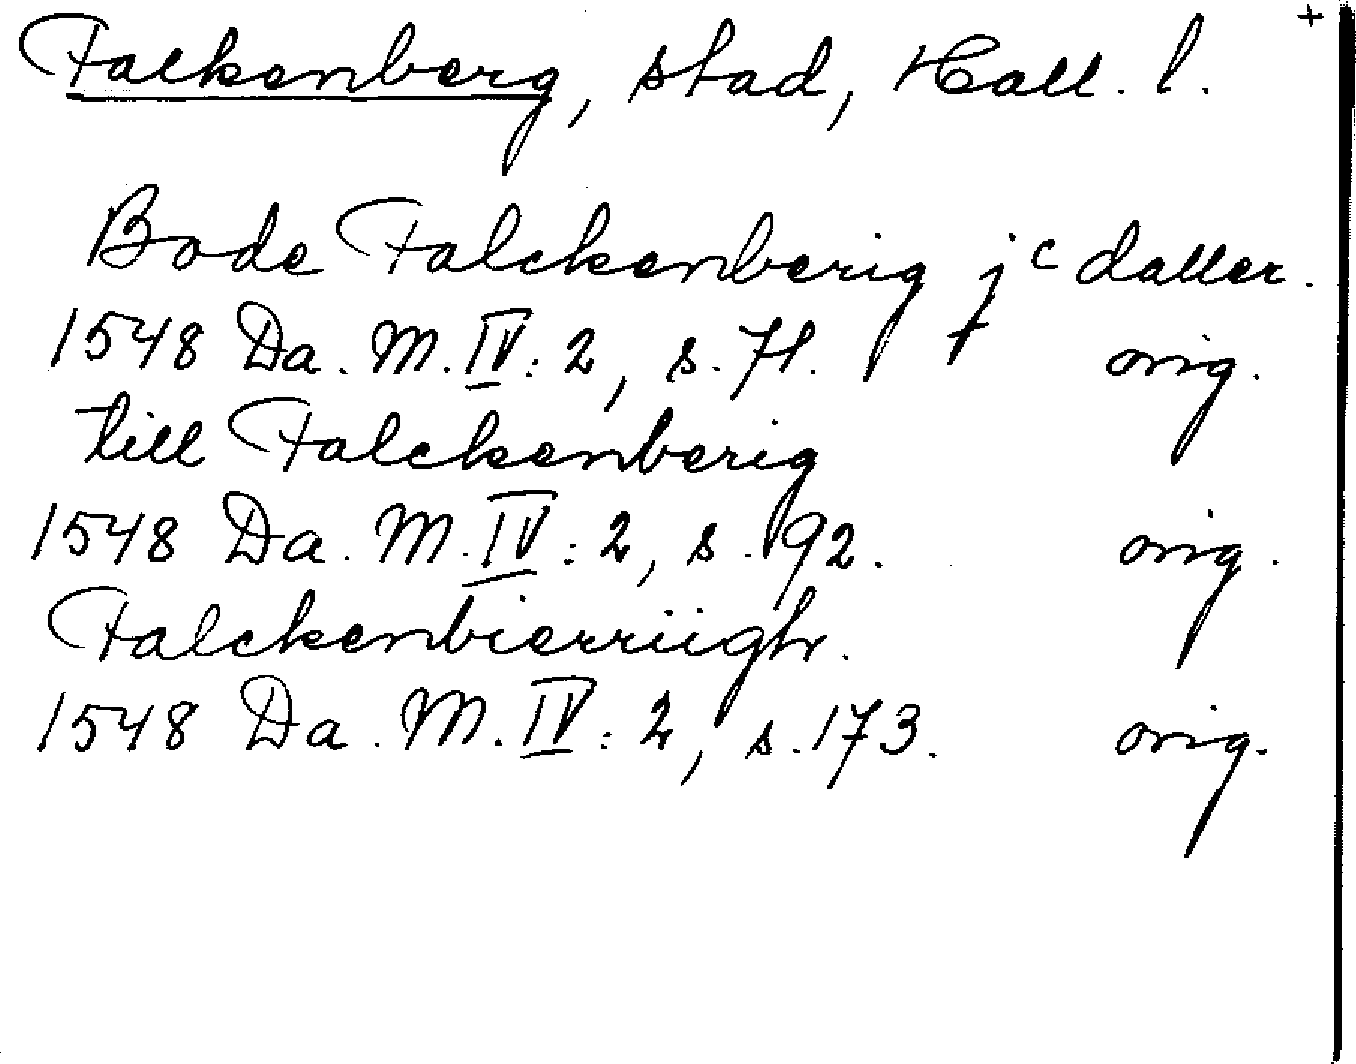 Falkenberg, stad, Hall. l. +
Bode Falckenberig jc daller.
1548 Da. M. IV: 2, s. 71. orig.
till Falckenberig
1548 Da. M. IV: 2, s. 92. orig.
Falckenbierriigh.
1548 Da. M. IV: 2, s. 173. orig.